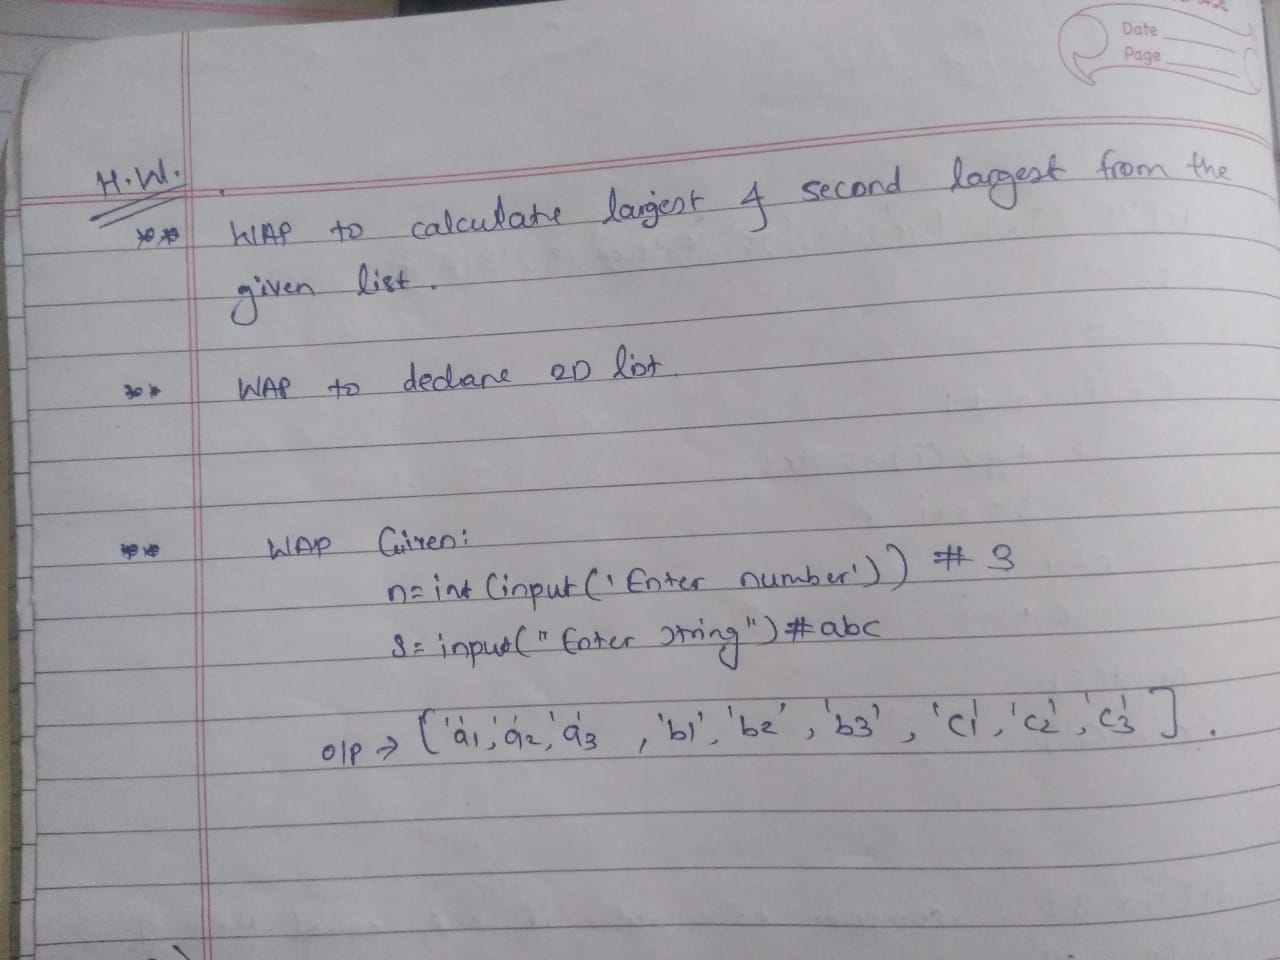 Date
Page
H.W.
** WAP to calculate largest & second largest from the
given list.
** WAP to declare 2D list.
** WAP Given:
n=int(input('Enter number')) # 3
s=input("Enter string")#abc
o/p → ['a1','a2','a3','b1','b2','b3','c1','c2','c3'].